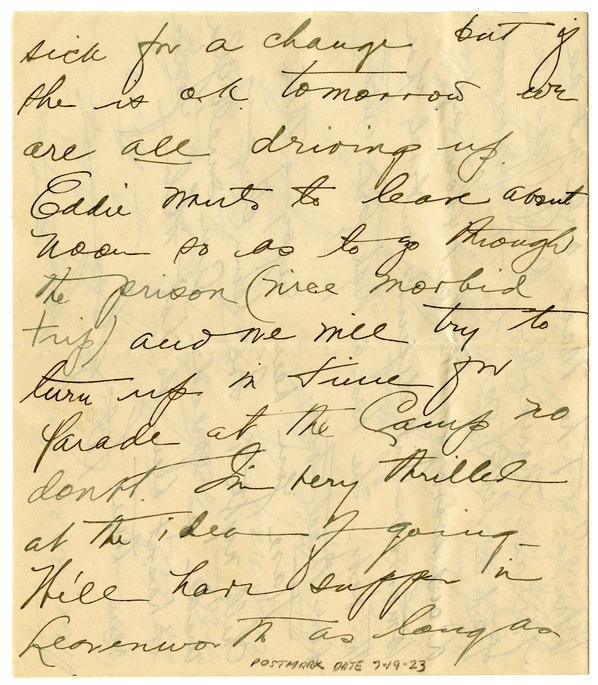 sick for a change but if
she is o.k. tomorrow we
are all driving up.
Eddie wants to leave about
noon so as to go through
the prison (nice morbid
trip) and we will try to
turn up in time for
parade at the Camp no
doubt. I'm very thrilled
at the idea of going.
We'll have supper in
Leavenworth as long as
POSTMARK DATE 7-19-23